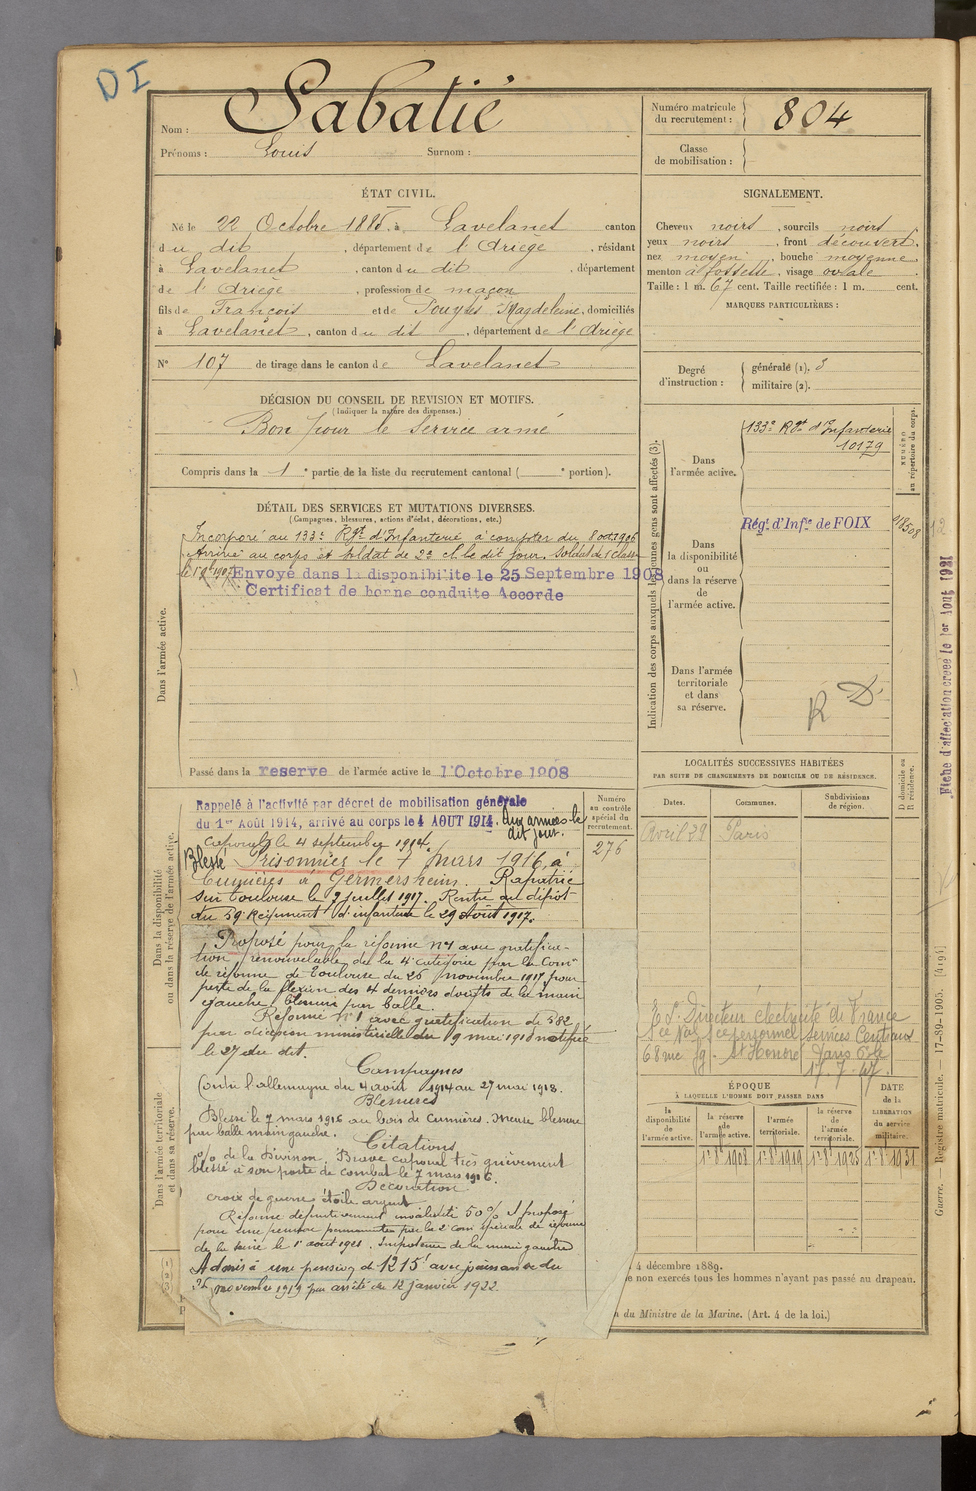 DI
Nom : Sabatié
Prénoms : Louis Surnom :
Numéro matricule du recrutement : 804
Classe de mobilisation :
ÉTAT CIVIL.
Né le 22 Octobre 1885, à Lavelanet canton
du dit, département de l'Ariège, résidant
à Lavelanet, canton du dit, département
de l'Ariège, profession de maçon
fils de François et de Pouytes Magdeleine, domiciliés
à Lavelanet, canton du dit, département de l'Ariège
N° 107 de tirage dans le canton de Lavelanet
SIGNALEMENT.
Cheveux noirs, sourcils noirs
yeux noirs, front découvert,
nez moyen, bouche moyenne,
menton à fossette, visage ovale
Taille : 1 m. 67 cent. Taille rectifiée : 1 m. cent.
MARQUES PARTICULIÈRES :
Degré d'instruction : générale (1). 3
militaire (2).
DÉCISION DU CONSEIL DE REVISION ET MOTIFS.
(Indiquer la nature des dispenses.)
Bon pour le service armé
Compris dans la 1e partie de la liste du recrutement cantonal ( e portion).
DÉTAIL DES SERVICES ET MUTATIONS DIVERSES.
(Campagnes, blessures, actions d'éclat, décorations, etc.)
Dans l'armée active.
Incorporé au 133e Rgt d'Infanterie à compter du 8 oct 1906
Arrivé au corps et soldat de 2e cl. le dit jour. Soldat de 1 classe
Envoyé dans la disponibilite le 25 Septembre 1908
Certificat de bonne conduite Accorde
Passé dans la reserve de l'armée active le 1 Octobre 1908
Indication des corps auxquels les jeunes gens sont affectés (3).
NUMÉRO au répertoire du corps.
Dans l'armée active.
133e Rgt d'Infanterie
10179
Régt d'Infie de FOIX
Dans la disponibilité ou dans la réserve de l'armée active.
Dans l'armée territoriale et dans sa réserve.
R D
Fiche d'affectation creee le 1er Aout 1921
LOCALITÉS SUCCESSIVES HABITÉES
PAR SUITE DE CHANGEMENTS DE DOMICILE OU DE RÉSIDENCE.
D domicile ou R résidence.
Dates. Communes. Subdivisions de région.
Avril 39 Paris
Dans la disponibilité ou dans la réserve de l'armée active.
Numéro au contrôle spécial du recrutement.
276
Rappelé à l'activité par décret de mobilisation générale
du 1er Août 1914, arrivé au corps le 4 AOUT 1914. Aux armées le
dit jour.
Caporal le 4 septembre 1914.
Blessé Prisonnier le 7 Mars 1916 à
Cumières à Germersheim. Rapatrié
sur Toulouse le 9 Juillet 1917. Rentré au dépôt
du 59 Régiment d'infanterie le 29 Août 1917.
Proposé pour la réforme n°1 avec gratifica-
tion renouvelable de la 4e catégorie par la Comon
de réforme de Toulouse du 26 novembre 1917 pour
perte de la flexion des 4 derniers doigts de la main
gauche, blessure par balle.
Réformé n°1 avec gratification de 582
par décision ministérielle du 9 mai 1918 notifiée
le 27 du dit.
Campagnes
Contre l'allemagne du 4 août 1914 au 27 mai 1918.
Blessures
Blessé le 7 mars 1916 au bois de Cumières. Meuse blessure
par balle main gauche.
Citations
de la Division. Brave caporal très grièvement
blessé à son poste de combat le 7 mars 1916.
Décoration
croix de guerre étoile argent
Réformé définitivement invalidité 50% et proposé
pour une pension permanente par la 2e com spéciale de réforme
de la Seine le 1 août 1921. Impotence de la main gauche
Admis à une pension de 1215f avec jouissance du
novembre 1919 par arrêté du 12 janvier 1922
Dans l'armée territoriale et dans sa réserve.
Directeur électricité de France
personnel Services Centraux
68 rue fg. St Honoré Paris
17. 7. 47.
ÉPOQUE
À LAQUELLE L'HOMME DOIT PASSER DANS
la disponibilité de l'armée active. la réserve de l'armée active. l'armée territoriale. la réserve de l'armée territoriale.
DATE de la LIBÉRATION du service militaire.
1r 8e 1908 1r 8e 1919 1r 8e 1925 1r 8e 1931
4 décembre 1889.
e non exercés tous les hommes n'ayant pas passé au drapeau.
n du Ministre de la Marine. (Art. 4 de la loi.)
Guerre. — Registre matricule. — 17-89-1905. [4194]